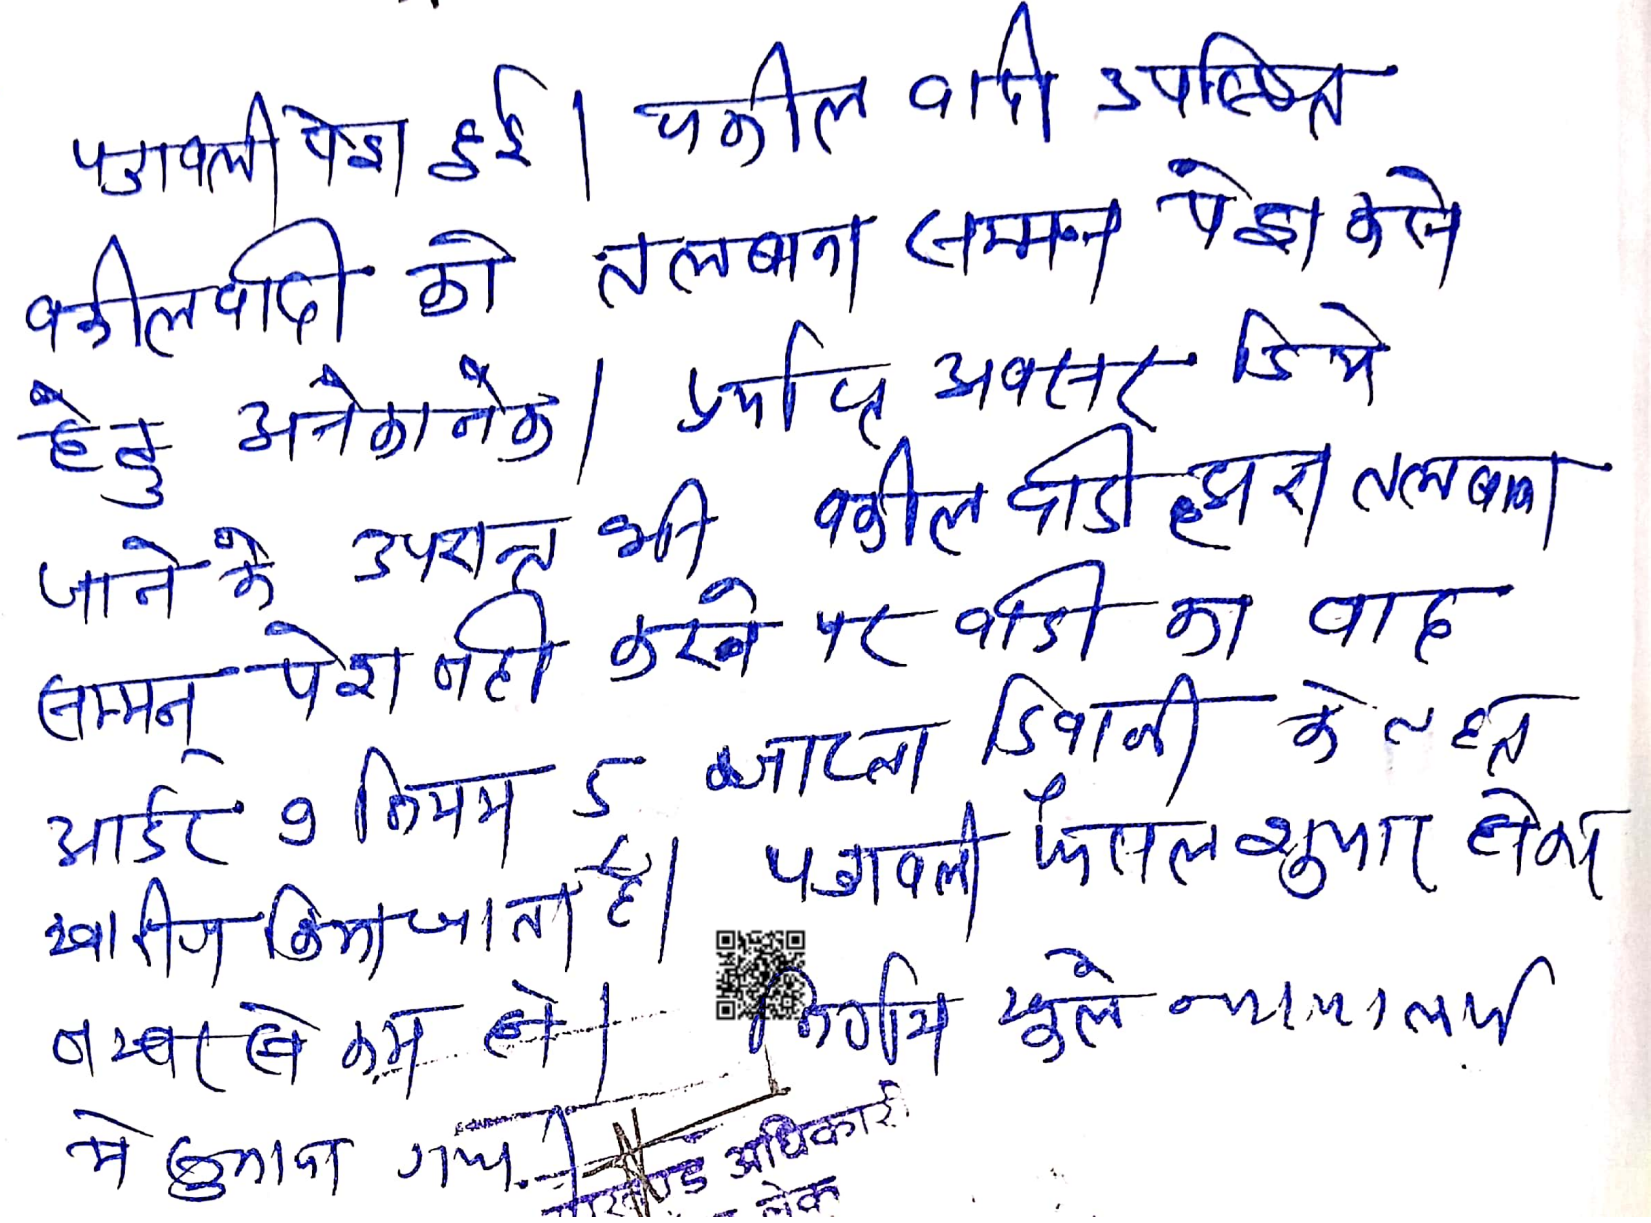 पत्रावली पेश हुई। वकील वादी उपस्थित
वकील वादी को तलबाना सम्मन पेश करने
हेतु अनेकानेक। पर्याप्त अवसर दिये
जाने के उपरान्त भी वकील वादी द्वारा तलबाना
सम्मन् पेश नही करने पर वादी का वाद
आर्डर 9 नियम 5 जाप्ता दिवानी के तहत
खारीज किया जाता है। पत्रावली फैसल शुमार होकर
नम्बर से कम हो। निर्णय खुले न्यायालय
मे सुनाया गया।
उपखण्ड अधिकारी